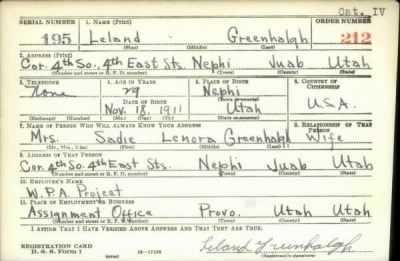 Cat. IV
SERIAL NUMBER 1. NAME (Print) ORDER NUMBER
195 Leland Greenhalgh 212
(First) (Middle) (Last)
2. ADDRESS (Print)
Cor. 4th So., 4th East Sts. Nephi Juab Utah
(Number and street or R. F. D. number) (Town) (County) (State)
3. TELEPHONE 4. AGE IN YEARS 5. PLACE OF BIRTH 6. COUNTRY OF CITIZENSHIP
None 29 Nephi
(Town or county)
DATE OF BIRTH
Nov. 18, 1911 Utah U.S.A.
(Exchange) (Number) (Mo.) (Day) (Yr.) (State or country)
7. NAME OF PERSON WHO WILL ALWAYS KNOW YOUR ADDRESS 8. RELATIONSHIP OF THAT PERSON
Mrs. Sadie Lenora Greenhalgh Wife
(Mr., Mrs., Miss) (First) (Middle) (Last)
9. ADDRESS OF THAT PERSON
Cor. 4th So. 4th East Sts. Nephi Juab Utah
(Number and street or R. F. D. number) (Town) (County) (State)
10. EMPLOYER'S NAME
W.P.A. Project
11. PLACE OF EMPLOYMENT OR BUSINESS
Assignment Office Provo. Utah Utah
(Number and street or R. F. D. number) (Town) (County) (State)
I AFFIRM THAT I HAVE VERIFIED ABOVE ANSWERS AND THAT THEY ARE TRUE.
REGISTRATION CARD
D. S. S. Form 1 (over) Leland Greenhalgh
(Registrant's signature)